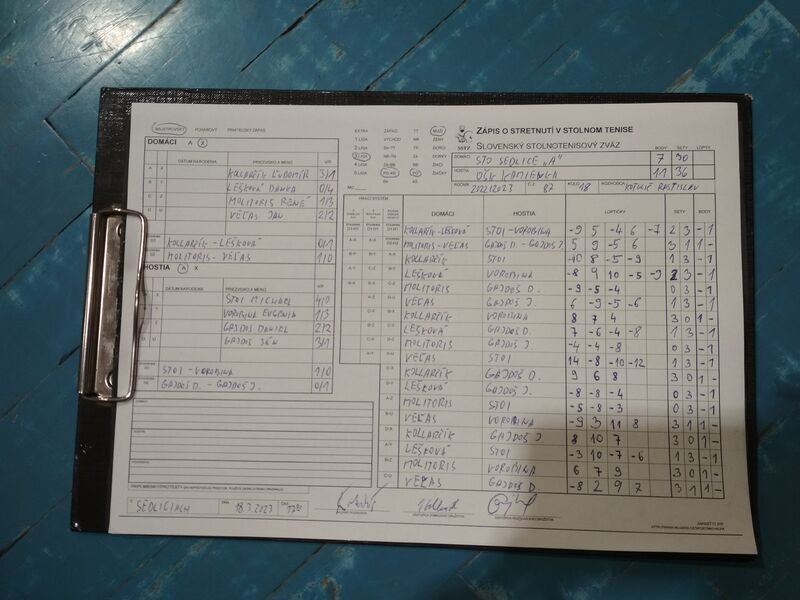 MAJSTROVSKÝ POHÁROVÝ PRIATEĽSKÝ ZÁPAS
DOMÁCI A X
DÁTUM NARODENIA PRIEZVISKO A MENO V/P
KOLLARČÍK ĽUDOMÍR 3/1
LEŠKOVÁ DANKA 0/4
MOLITORIS RENÉ 1/3
VEĽAS JÁN 2/2
KOLLARČÍK - LEŠKOVÁ 0/1
MOLITORIS - VEĽAS 1/0
HOSTIA A X
DÁTUM NARODENIA PRIEZVISKO A MENO V/P
ŠTOI MICHAEL 4/0
VOROBINA EUGENIA 1/3
GAJDOŠ DANIEL 2/2
GAJDOŠ JÁN 3/1
ŠTOI - VOROBINA 1/0
GAJDOŠ D. - GAJDOŠ J. 0/1
DOMÁCI:
HOSTIA:
ROZHODCA:
PRIPOMIENKY/PROTESTY
SEDLICIACH DŇA 18.3.2023 ČAS
EXTRA ZÁPAD TT MUŽI
1 LIGA VÝCHOD NR ŽENY
2 LIGA BA-TT TN DORCI
3 LIGA NR-TN ZA DORKY
4 LIGA ZA-BB BB ŽIACI
5 LIGA PO-KE PO ŽIAČKY
BA KE
HRACÍ SYSTÉM
SSTZ
ZÁPIS O STRETNUTÍ V STOLNOM TENISE
SLOVENSKÝ STOLNOTENISOVÝ ZVÄZ
BODY SETY LOPTY
DOMÁCI STO SEDLICE „A“ 7 30
HOSTIA OŠK KAMIENKA 11 36
ROČNÍK 2022/2023 Č.Z. 87 KOLO 18 ROZHODCA KOTULIČ RASTISLAV
DOMÁCI HOSTIA LOPTIČKY SETY BODY
KOLLARČÍK-LEŠKOVÁ ŠTOI-VOROBINA -9 5 -4 6 -7 2 3 - 1
MOLITORIS-VEĽAS GAJDOŠ D.-GAJDOŠ J. 5 9 -5 6 3 1 1 -
KOLLARČÍK ŠTOI -10 8 -5 -9 1 3 - 1
LEŠKOVÁ VOROBINA -8 9 10 -5 -9 2 3 - 1
MOLITORIS GAJDOŠ D. -9 -5 -4 0 3 - 1
VEĽAS GAJDOŠ J. 6 -9 -5 -6 1 3 - 1
KOLLARČÍK VOROBINA 8 7 4 3 0 1 -
LEŠKOVÁ GAJDOŠ D. 7 -6 -4 -8 1 3 - 1
MOLITORIS GAJDOŠ J. -4 -4 -8 0 3 - 1
VEĽAS ŠTOI 14 -8 -10 -12 1 3 - 1
KOLLARČÍK GAJDOŠ D. 9 6 8 3 0 1 -
LEŠKOVÁ GAJDOŠ J. -8 -8 -4 0 3 - 1
MOLITORIS ŠTOI -5 -8 -3 0 3 - 1
VEĽAS VOROBINA -9 3 11 8 3 1 1 -
KOLLARČÍK GAJDOŠ J. 8 10 7 3 0 1 -
LEŠKOVÁ ŠTOI -3 10 -7 -6 1 3 - 1
MOLITORIS VOROBINA 6 7 9 3 0 1 -
VEĽAS GAJDOŠ D. -8 2 9 7 3 1 1 -